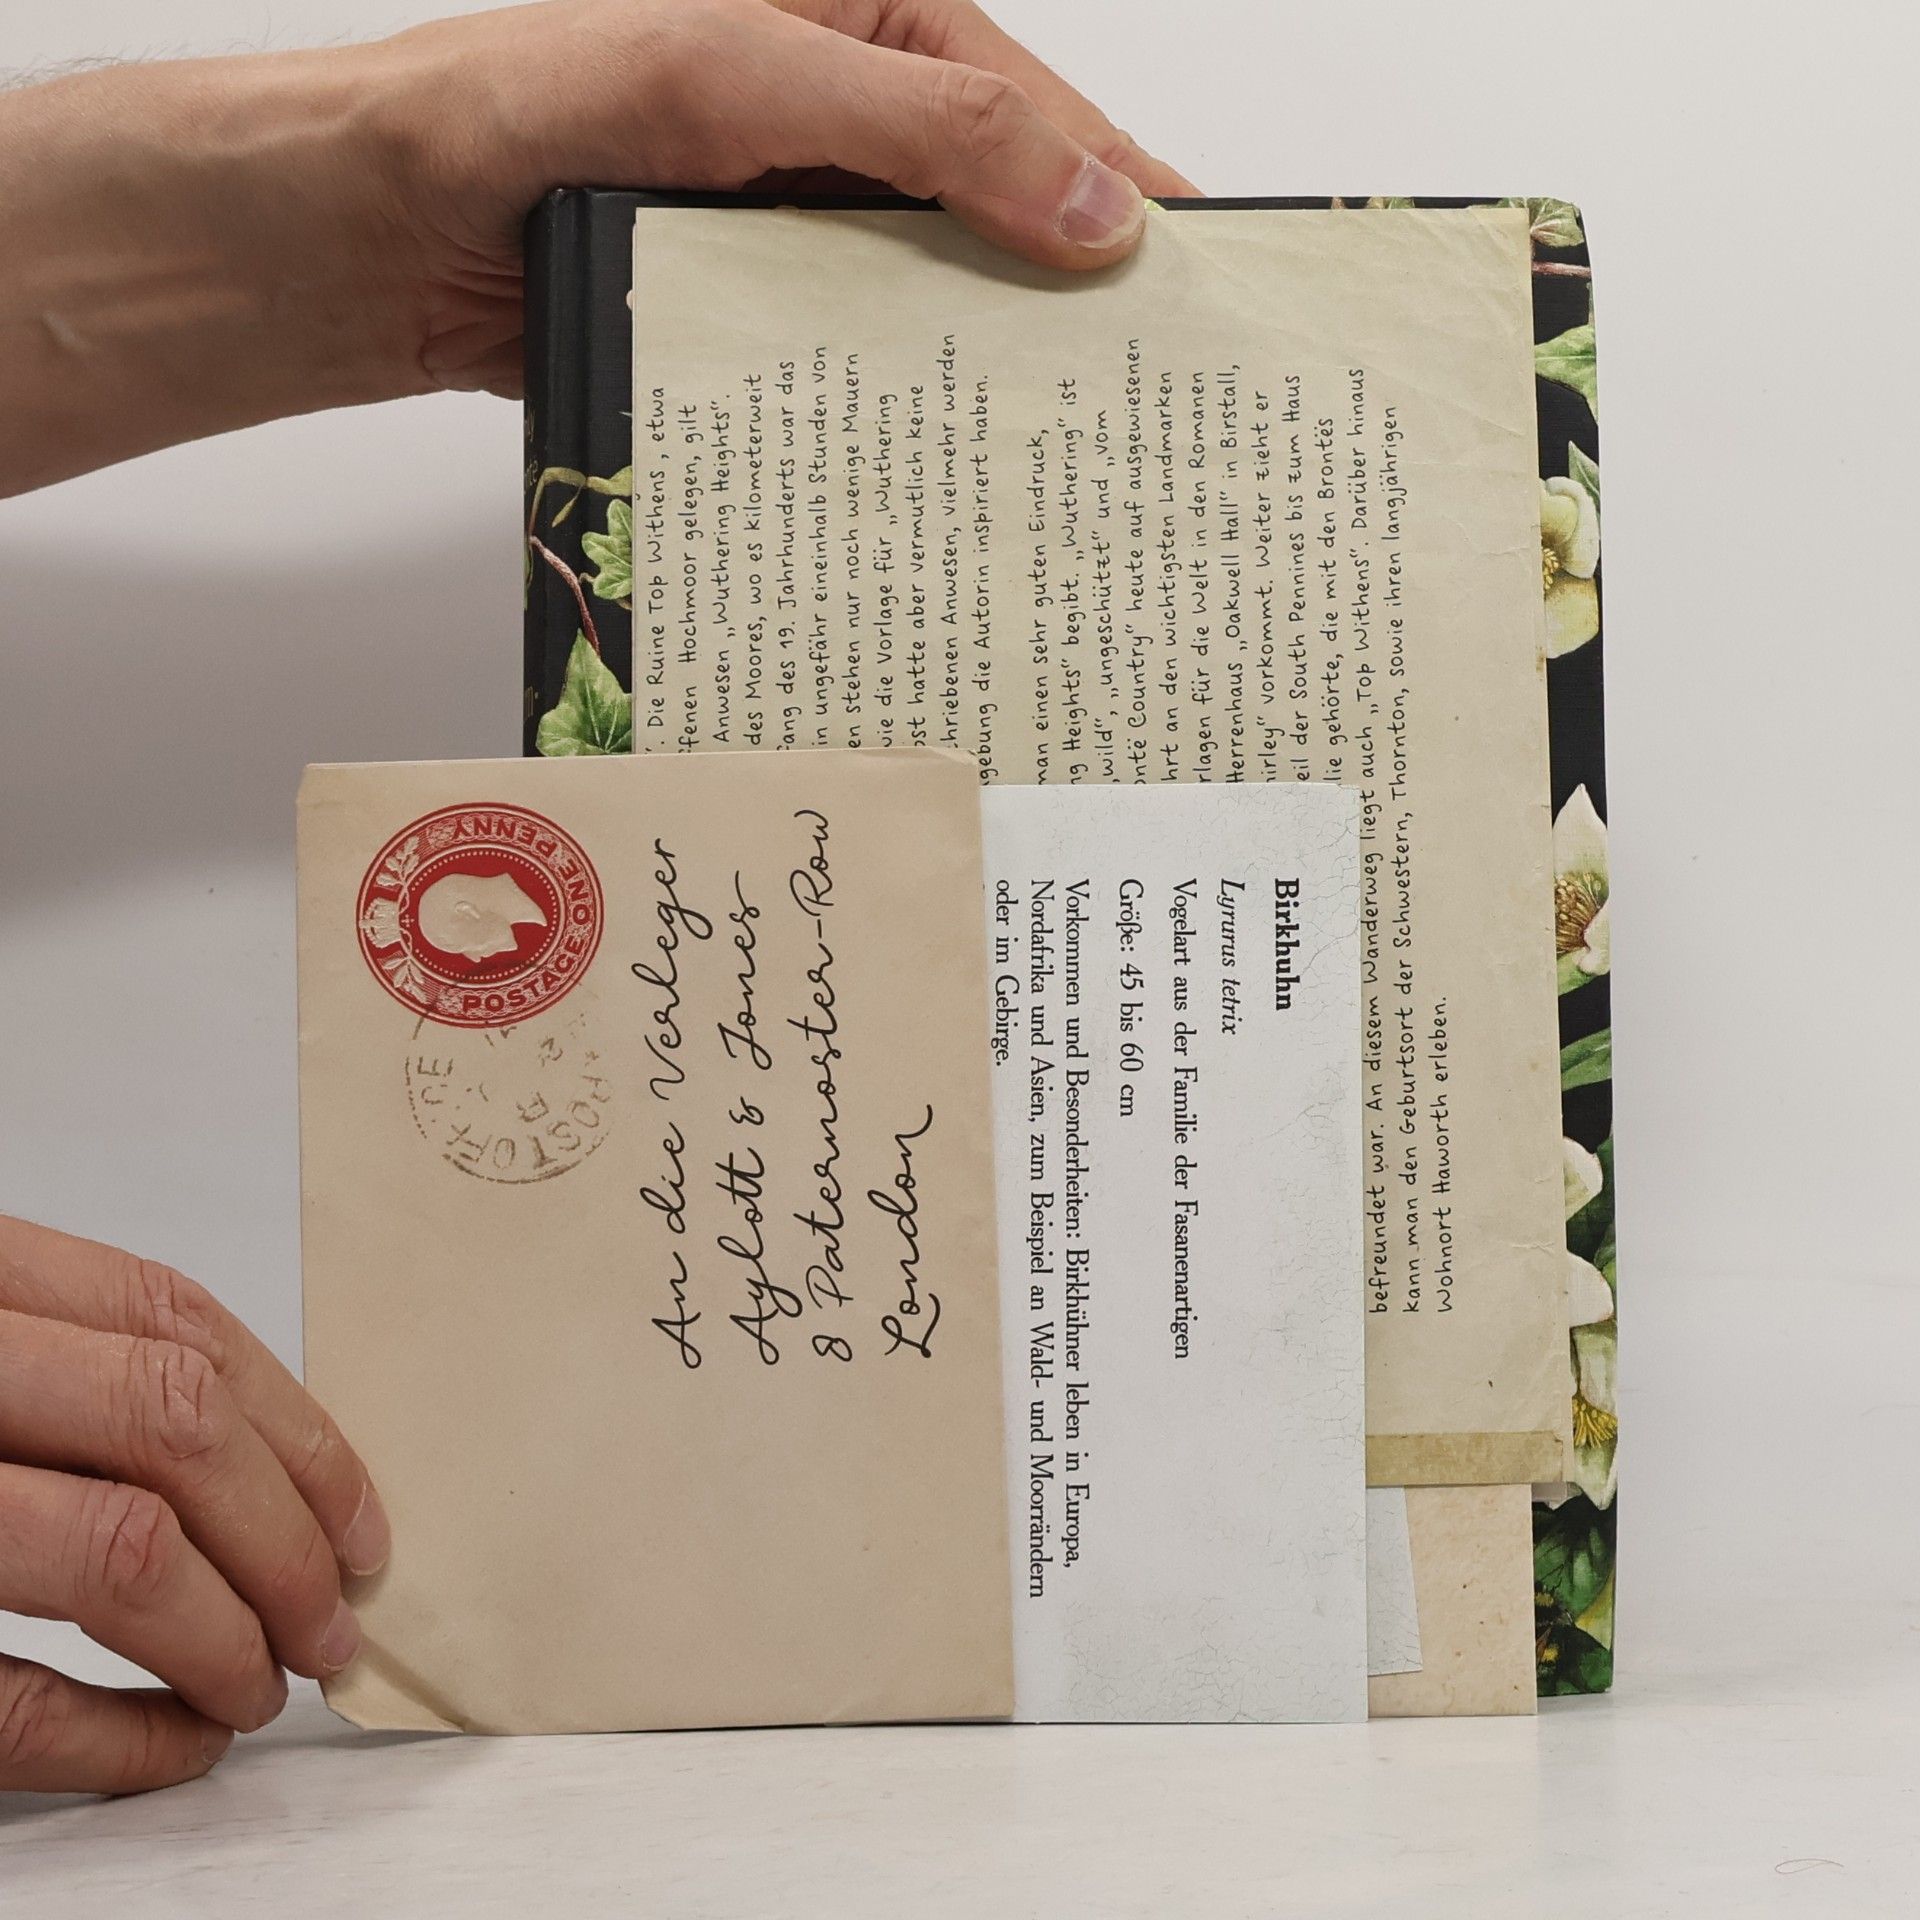 ONE PENNY
POSTAGE
POST OFF
An die Verleger
Aylott & Jones
8 Paternoster-Row
London
Birkhuhn
Lyrurus tetrix
Vogelart aus der Familie der Fasanenartigen
Größe: 45 bis 60 cm
Vorkommen und Besonderheiten: Birkhühner leben in Europa,
Nordafrika und Asien, zum Beispiel an Wald- und Moorrändern
oder im Gebirge.
". Die Ruine Top Withens, etwa
ffenen Hochmoor gelegen, gilt
Anwesen „Wuthering Heights".
des Moores, wo es kilometerweit
fang des 19. Jahrhunderts war das
in ungefähr eineinhalb Stunden von
en stehen nur noch wenige Mauern
wie die Vorlage für „Wuthering
bst hatte aber vermutlich keine
chriebenen Anwesen, vielmehr werden
gebung die Autorin inspiriert haben.
man einen sehr guten Eindruck,
ng Heights" begibt. „Wuthering" ist
„wild", „ungeschützt" und „vom
ontë Country" heute auf ausgewiesenen
hrt an den wichtigsten Landmarken
rlagen für die Welt in den Romanen
Herrenhaus „Oakwell Hall" in Birstall,
hirley" vorkommt. Weiter zieht er
eil der South Pennines bis zum Haus
lie gehörte, die mit den Brontës
befreundet war. An diesem Wanderweg liegt auch „Top Withens". Darüber hinaus
kann man den Geburtsort der Schwestern, Thornton, sowie ihren langjährigen
Wohnort Haworth erleben.